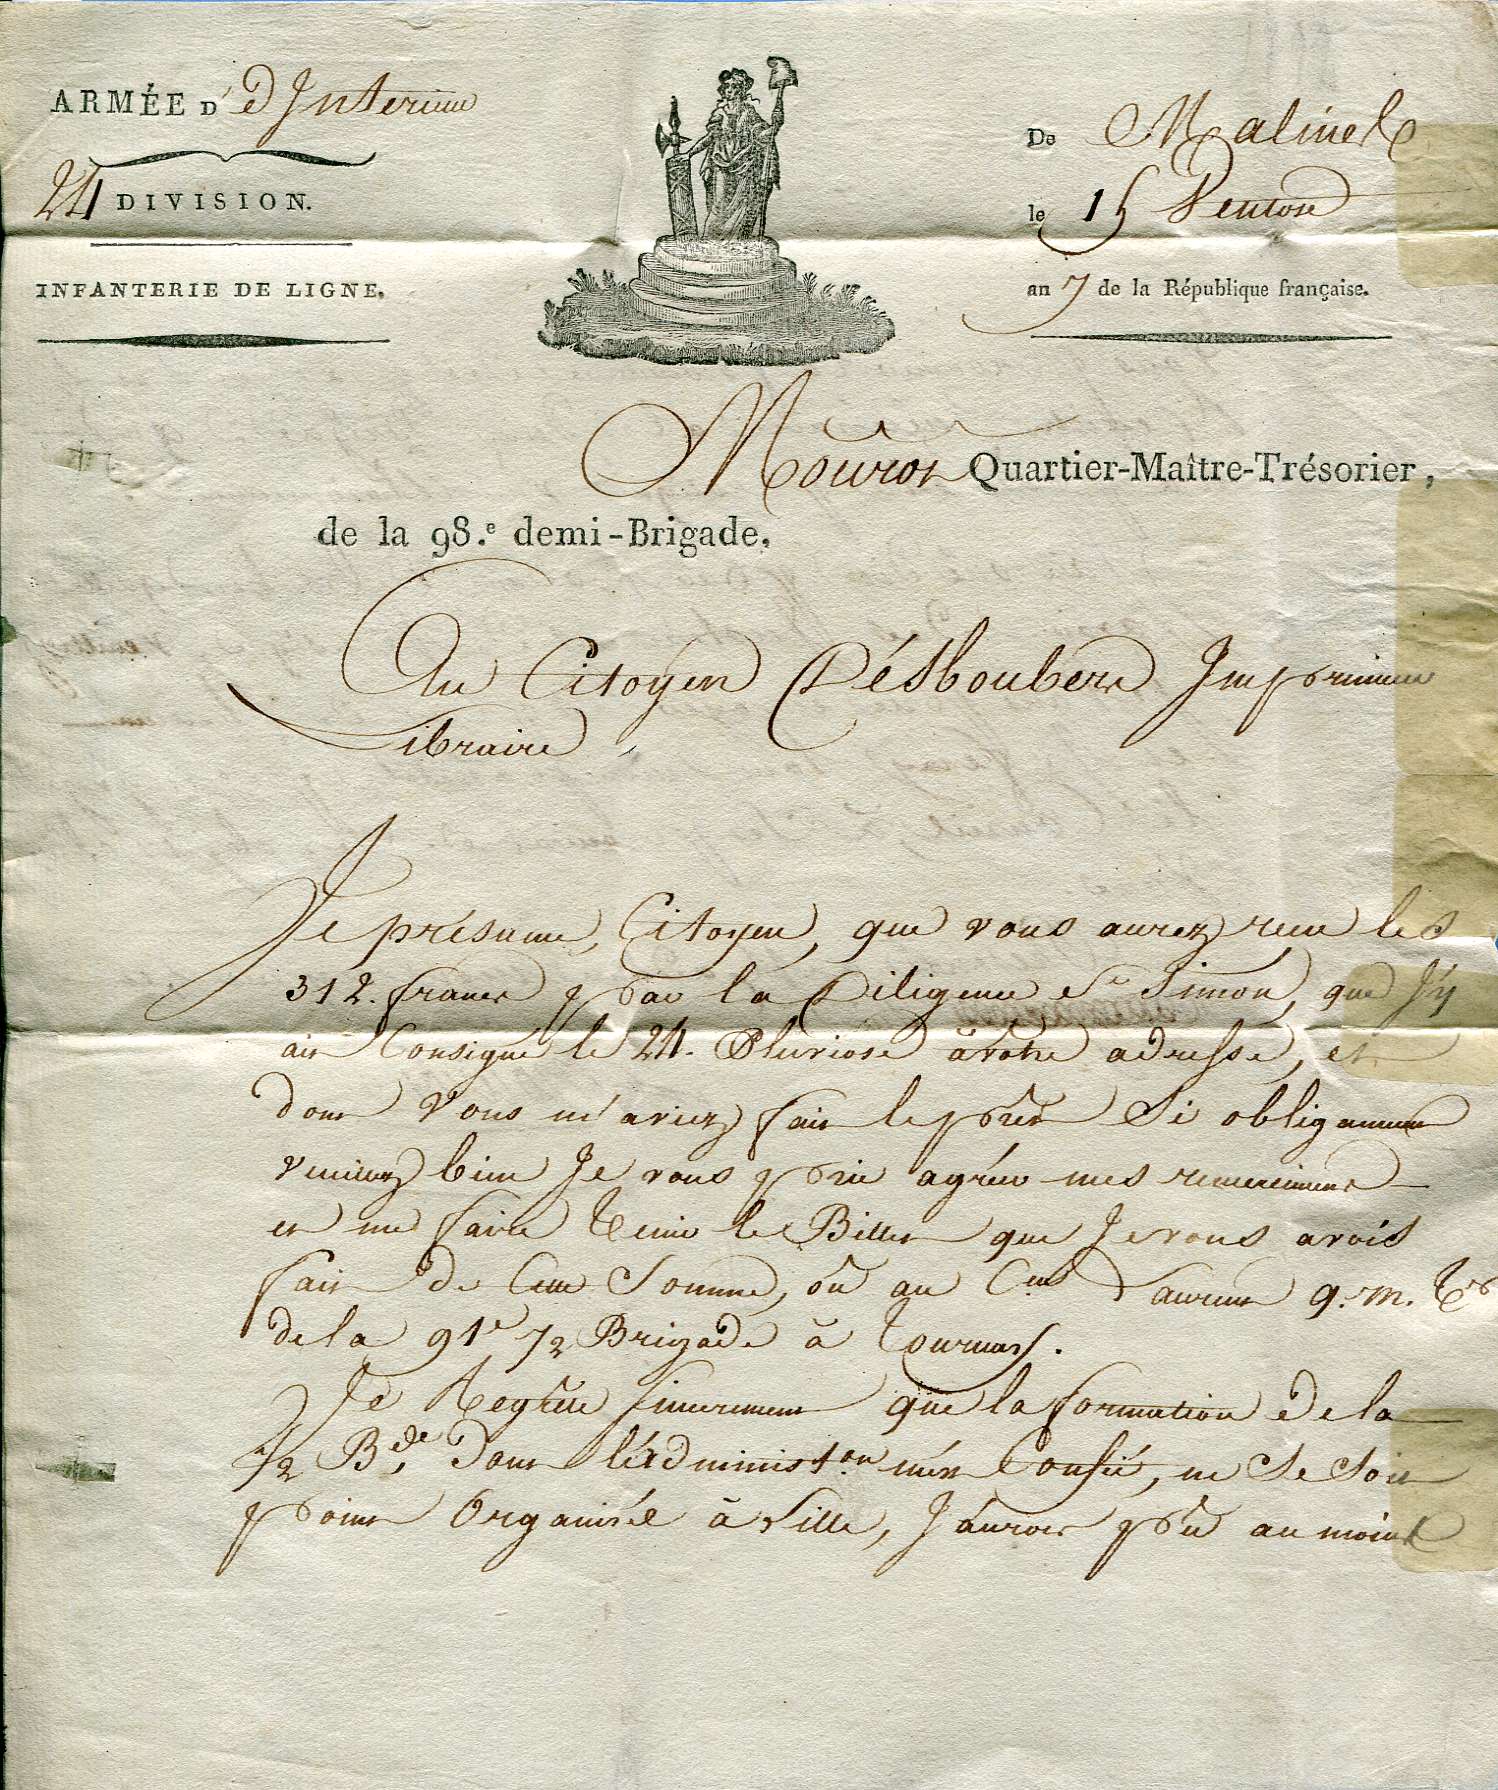 ARMÉE D' d'Interieur
24 DIVISION.
INFANTERIE DE LIGNE.
De Malines
le 15 Ventose
an 7 de la République française.
Mouron Quartier-Maître-Trésorier,
de la 98.e demi-Brigade,
Au Citoyen Imprimeur
Libraire
Je présume, Citoyen, que vous aurez recu les
312. francs par la Diligence St Simon, que J'y
ais Consigné le 24. Pluviose à votre adresse, et
dont Vous m'aviez fait le prêt Si obligamment
veuillez bien Je vous prie agréer mes remerciments
et me faire tenir le Billet que Je vous avois
fait de Cette Somme, ou au Cen Laurent q. m. Ter
de la 91e 1/2 Brigade à Tournay.
Je Regrette sincerement que la formation de la
1/2 Bde, dont l'administon m'est Confié, ne Se Soit
point Organisée à Lille, J'aurois pû au moins